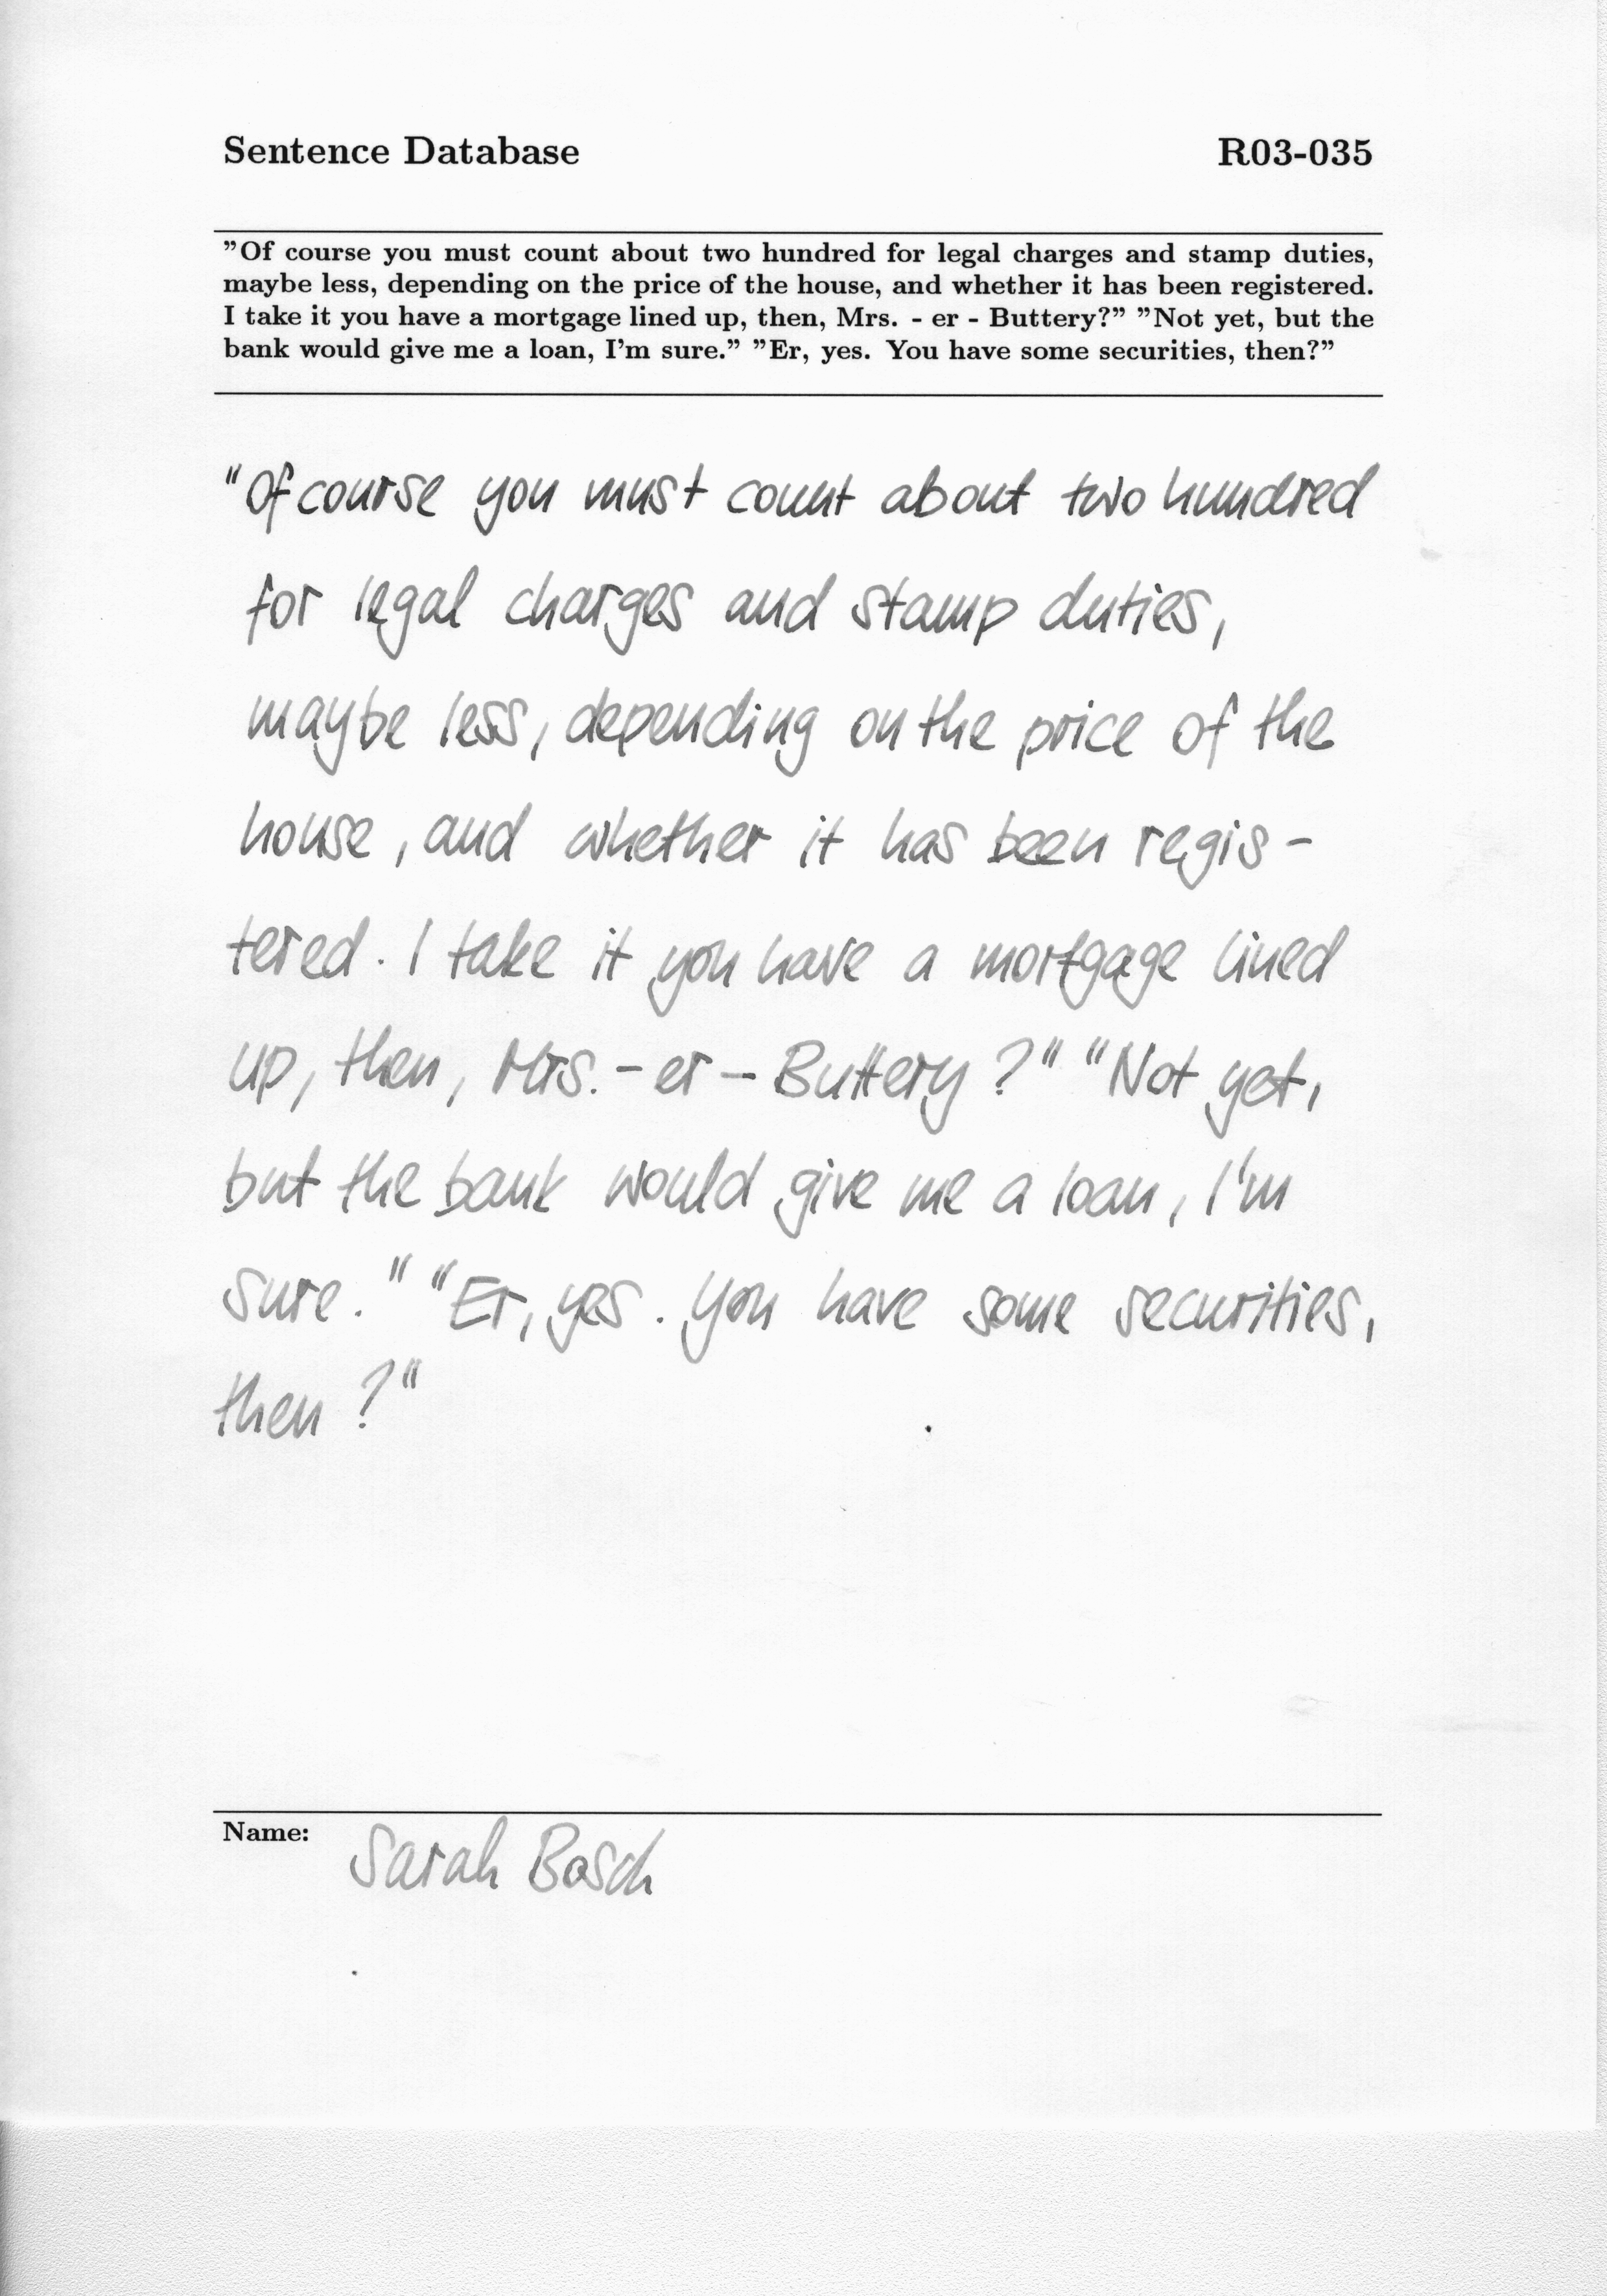 Sentence Database R03-035
”Of course you must count about two hundred for legal charges and stamp duties,
maybe less, depending on the price of the house, and whether it has been registered.
I take it you have a mortgage lined up, then, Mrs. - er - Buttery?” ”Not yet, but the
bank would give me a loan, I'm sure.” ”Er, yes. You have some securities, then?”
"Of course you must count about two hundred
for legal charges and stamp duties,
maybe less, depending on the price of the
house, and whether it has been regis-
tered. I take it you have a mortgage lined
up, then, Mrs. - er - Buttery?" "Not yet,
but the bank would give me a loan, I'm
sure." "Er, yes. You have some securities,
then?"
Name: Sarah Bosch